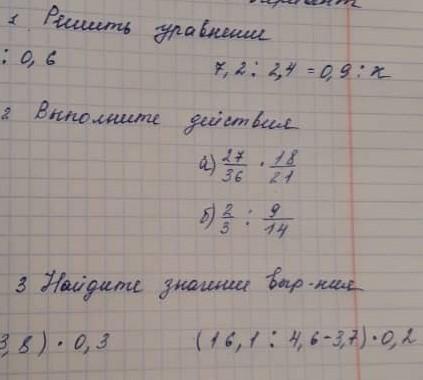 1 Решить уравнение
: 0,6 7,2 : 2,4 = 0,9 : x
2 Выполните действия
а) 27/36 · 18/21
б) 2/3 : 9/14
3 Найдите значение выр-ния
3,8) · 0,3 (16,1 : 4,6-3,7) · 0,2